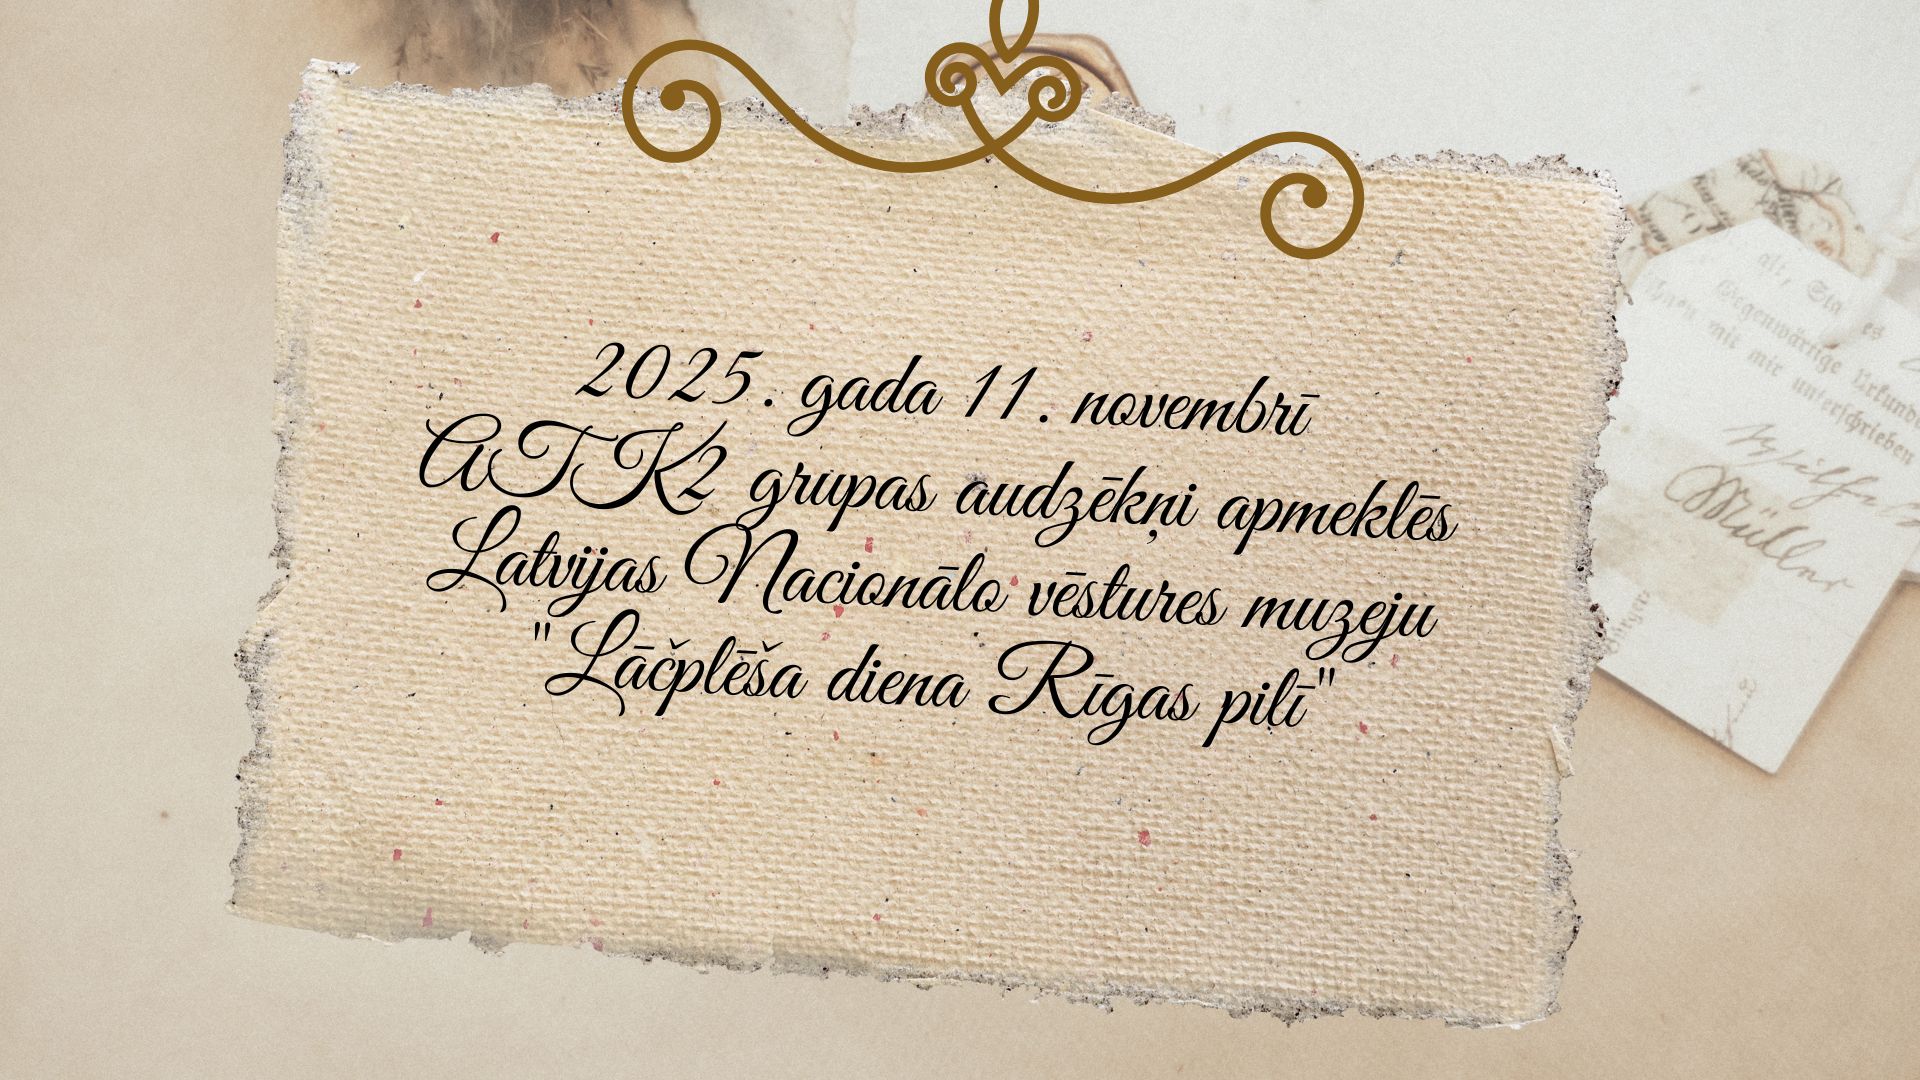 2025. gada 11. novembrī
ATK2 grupas audzēkņi apmeklēs
Latvijas Nacionālo vēstures muzeju
"Lāčplēša diena Rīgas pilī"
alt,
es
Gegenwärtige Urkunde
mit mir unterschrieben
Müller